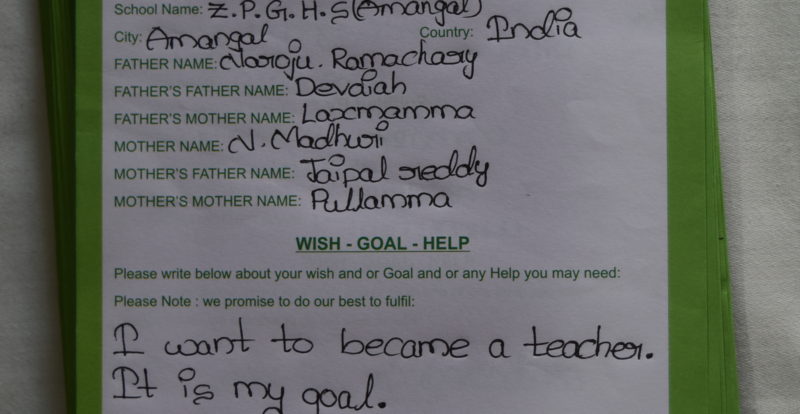 School Name: Z.P.G.H.S(Amangal)
City: Amangal Country: India
FATHER NAME: Naroju. Ramachary
FATHER'S FATHER NAME: Devdiah
FATHER'S MOTHER NAME: Laxmamma
MOTHER NAME: N. Madhuri
MOTHER'S FATHER NAME: Jaipal reddy
MOTHER'S MOTHER NAME: Pullamma
WISH - GOAL - HELP
Please write below about your wish and or Goal and or any Help you may need:
Please Note : we promise to do our best to fulfil:
I want to became a teacher.
It is my goal.